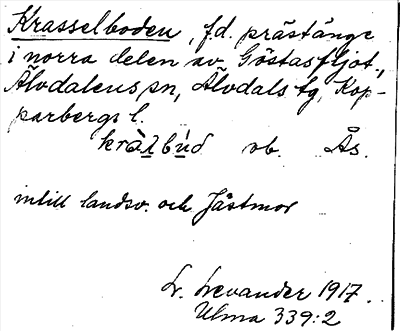 Krasselboden, f.d. prästänge
i norra delen av Göstasfljot.,
Älvdalens sn, Älvdals tg, Kop-
parbergs l.
kràlbùd vb. Ås.
intill landsv. och Jästmor
Lr. Levander 1917.
Ulma 339:2